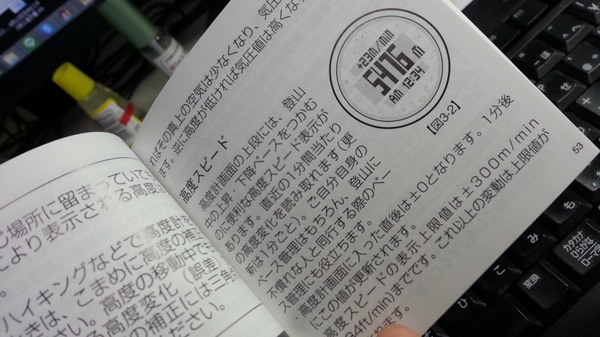 じ場所に留まっていて
により表示される高度
ハイキングなどで高度計
きは、こまめに高度の補
さい。高度の移動中で
る高度変化(誤差
の補正には三角
ださい。
ればその真上の空気は少なくなり、気圧
ます。逆に高度が低ければ気圧値は高くな
高度スピード
高度計画面の上段には、登山
の上昇・下降ペースをつかむ
のに便利な高度スピード表示が
あります。直近の1分間当たり
の高度変化を読み取れます(更
新は1分ごと)。ご自分自身の
ペース管理はもちろん、登山に
不慣れな人と同行する際のペー
ス管理にも役立ちます。
・高度計画面に入った直後は±0となります。1分後
にこの値が更新されます。
高度スピードの表示上限値は±300m/min
84ft/min)までです。これ以上の変動は上限値が
れます。
+23m/min
5416 m
AM 12:34
【図3-2】
53
こ
み
も
変換
カタカナ
ひらがな
ローマ